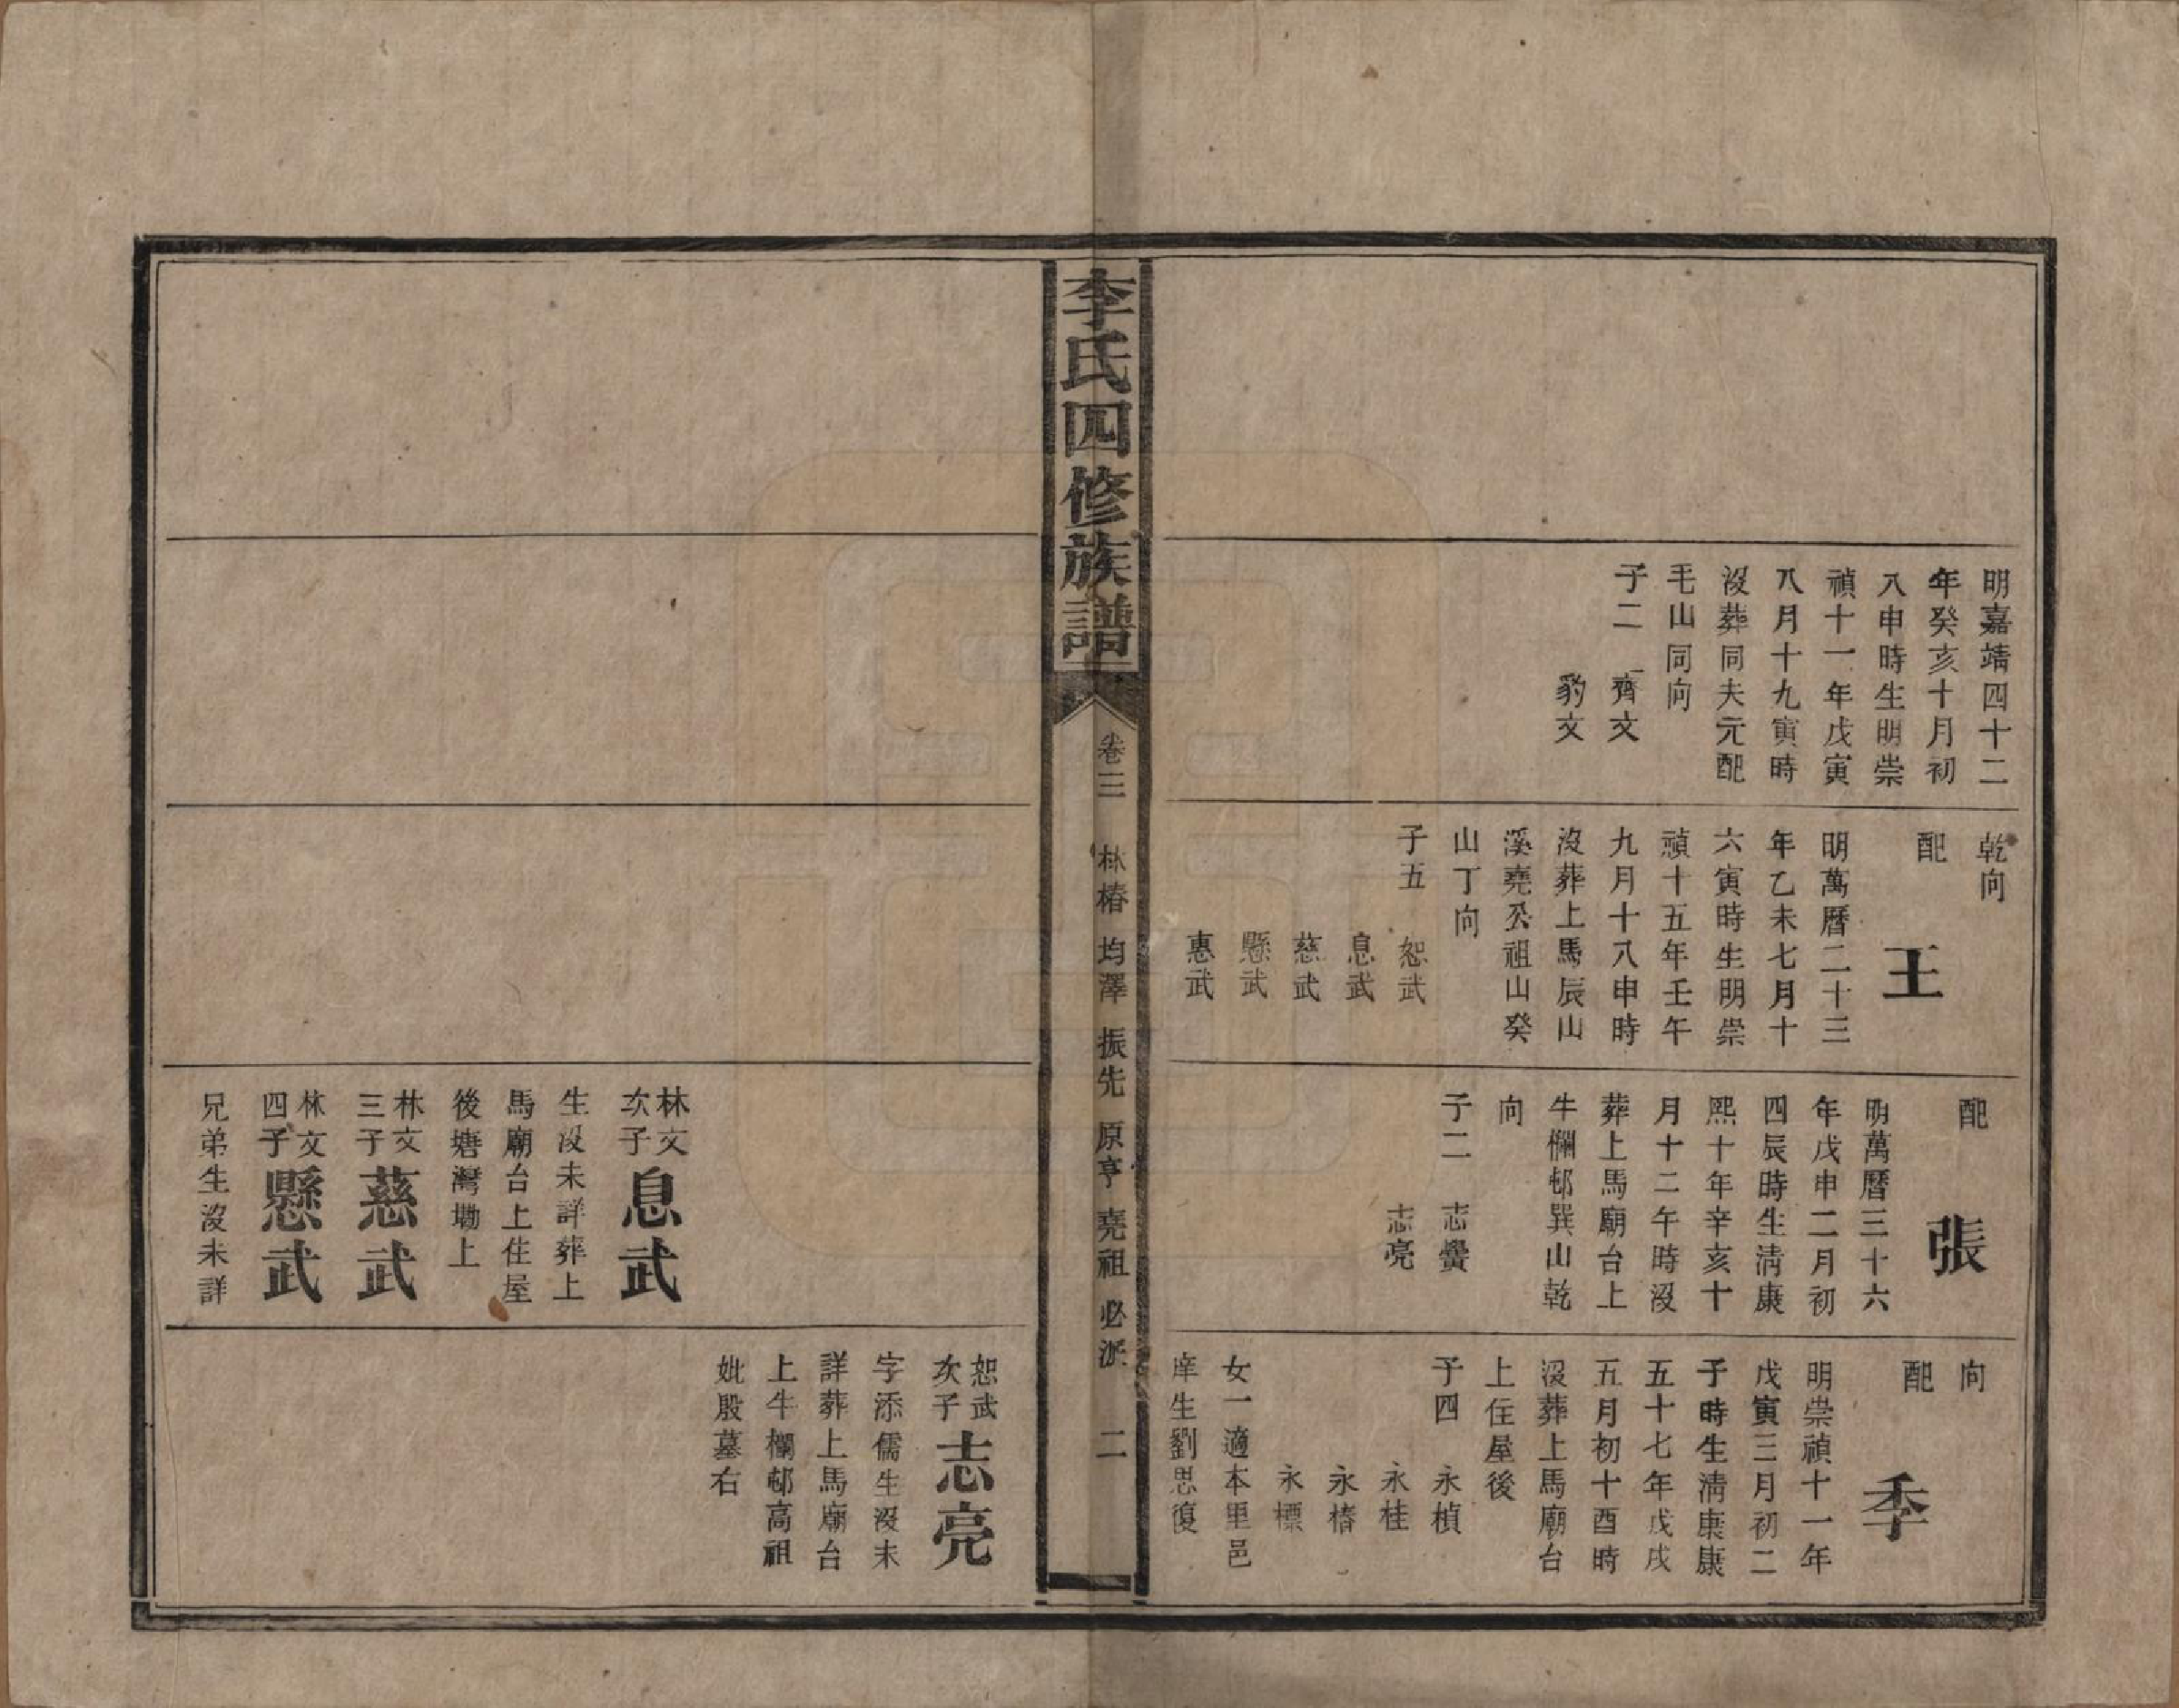 明嘉靖四十二
年癸亥十月初
八申時生明崇
禎十一年戊寅
八月十九寅時
沒葬同夫元配
毛山同向
子二 齊文
豹文
乾向
配 王
明萬曆二十三
年乙未七月十
六寅時生明崇
禎十五年壬午
九月十八申時
沒葬上馬辰山
溪堯公祖山癸
山丁向
子五 恕武
息武
慈武
懸武
惠武
配 張
明萬曆三十六
年戊申二月初
四辰時生清康
熙十年辛亥十
月十二午時沒
葬上馬廟台上
牛欄邨巽山乾
向
子二 志
志亮
向
配 季
明崇禎十一年
戊寅三月初二
子時生清康康
五十七年戊戌
五月初十酉時
沒葬上馬廟台
上住屋後
子四 永楨
永桂
永椿
永標
女一適本里邑
庠生劉思復
李氏四修族譜
卷三 林椿 均澤 振先 原亨 堯祖 必派 二
林文
次子 息武
生沒未詳葬上
馬廟台上住屋
後塘灣塝上
林文
三子 慈武
林文
四子 懸武
兄弟生沒未詳
恕武
次子 志亮
字添儒生沒未
詳葬上馬廟台
上牛欄邨高祖
妣殷墓右